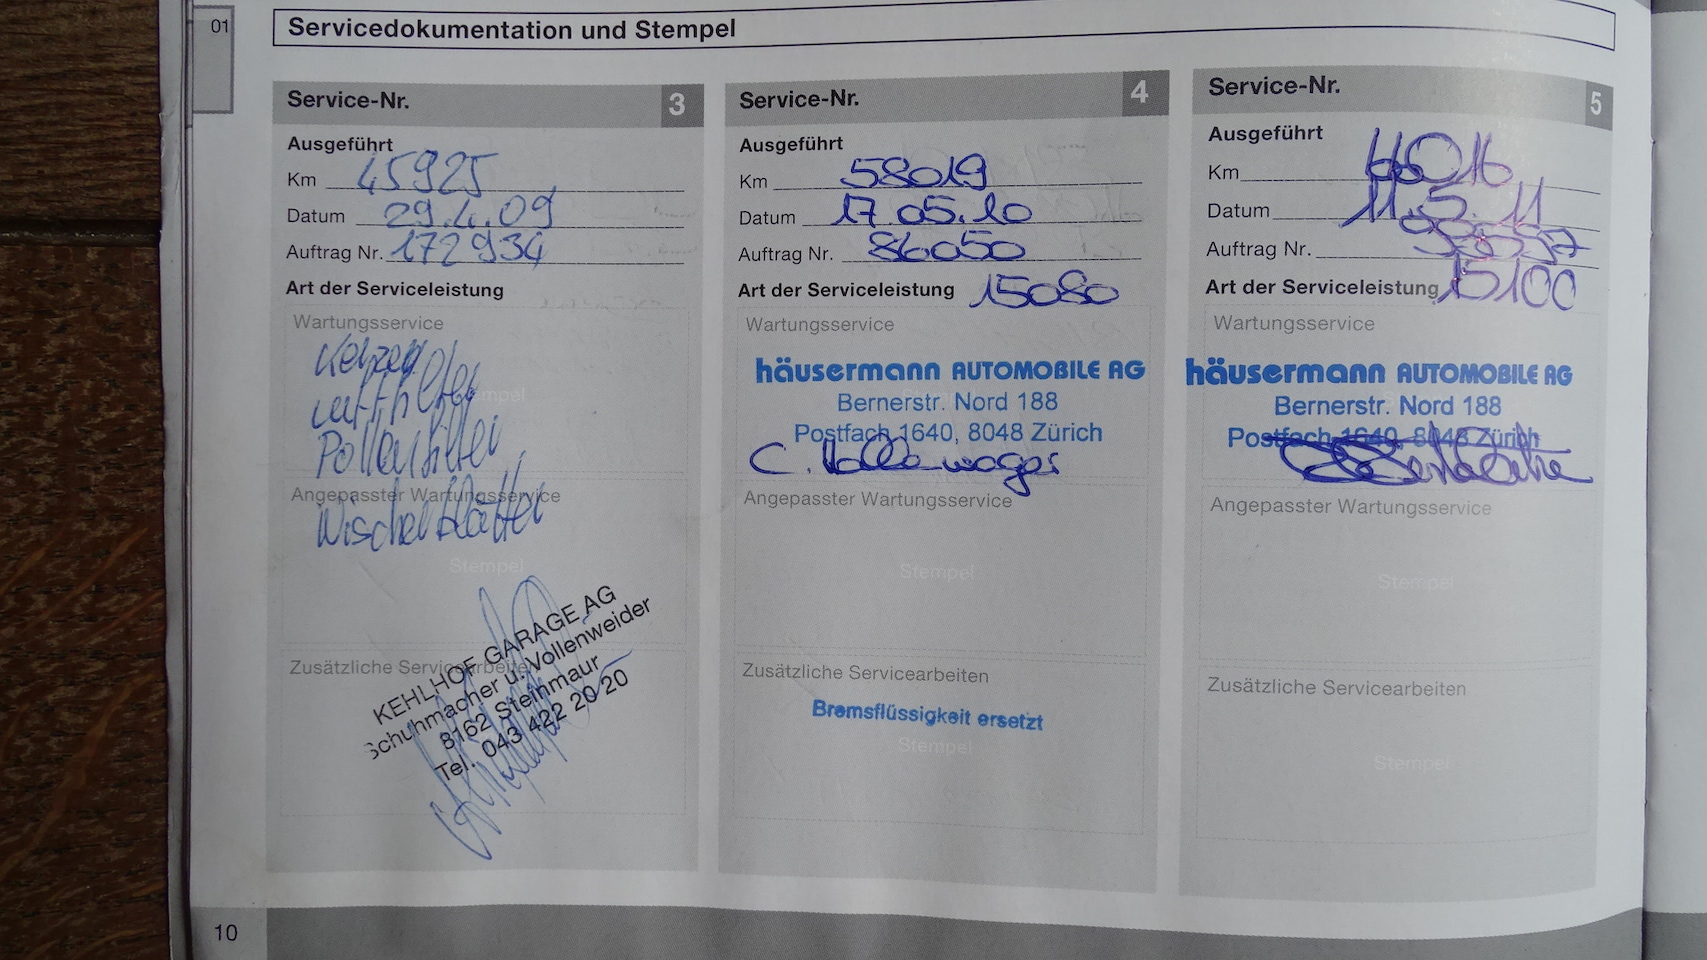 01
Servicedokumentation und Stempel
Service-Nr. 3
Ausgeführt
Km 45925
Datum 29.4.09
Auftrag Nr. 172934
Art der Serviceleistung
Wartungsservice
Kerzen
Luftfilter
Stempel
Pollenfilter
Angepasster Wartungsservice
Wischerblätter
Stempel
Zusätzliche Servicearbeiten
KEHLHOF GARAGE AG
Schuhmacher u. Vollenweider
8162 Steinmaur
Tel. 043 422 20 20
Service-Nr. 4
Ausgeführt
Km 58019
Datum 17.05.10
Auftrag Nr. 86050
Art der Serviceleistung 15080
Wartungsservice
häusermann AUTOMOBILE AG
Bernerstr. Nord 188
Postfach 1640, 8048 Zürich
Angepasster Wartungsservice
Stempel
Zusätzliche Servicearbeiten
Bremsflüssigkeit ersetzt
Stempel
Service-Nr. 5
Ausgeführt
Km 66016
Datum 11.5.11
Auftrag Nr.
Art der Serviceleistung 15100
Wartungsservice
häusermann AUTOMOBILE AG
Bernerstr. Nord 188
Postfach 1640, 8048 Zürich
Angepasster Wartungsservice
Stempel
Zusätzliche Servicearbeiten
Stempel
10